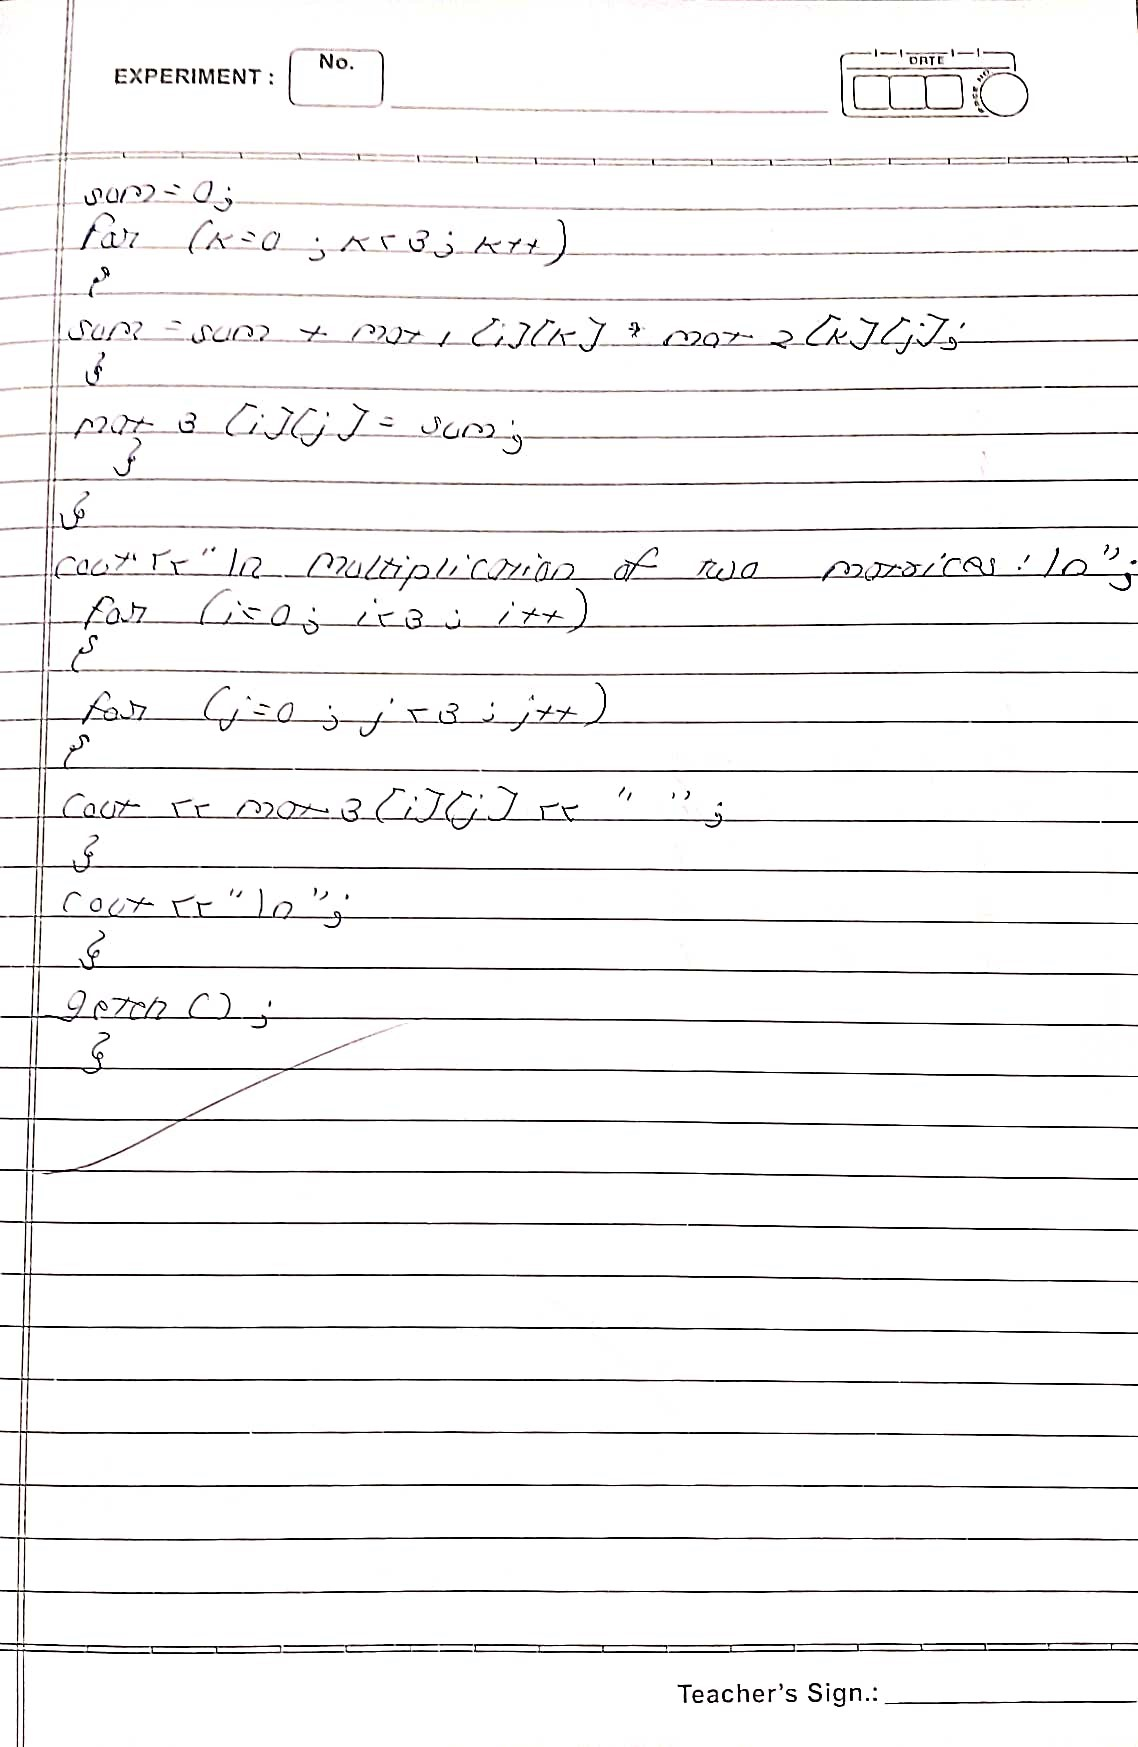 EXPERIMENT : No. DATE PAGE NO.
sum = 0;
for (k=0 ; k<3; k++)
{
sum = sum + mat 1 [i][k] * mat 2 [k][j];
}
mat 3 [i][j] = sum;
}
}
cout << "\n multiplication of two matrices : \n";
for (i=0; i<3; i++)
{
for (j=0 ; j<3 ; j++)
{
cout << mat 3 [i][j] << " ";
}
cout << "\n";
}
getch ();
}
Teacher's Sign.: